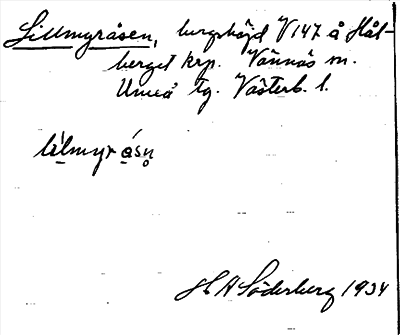 Lillmyråsen, bergshöjd V147 å Hål-
berget krp. Vännäs sn.
Umeå tg. Västerb. l.
lìlmyr ásn̥
H A Söderberg 1934